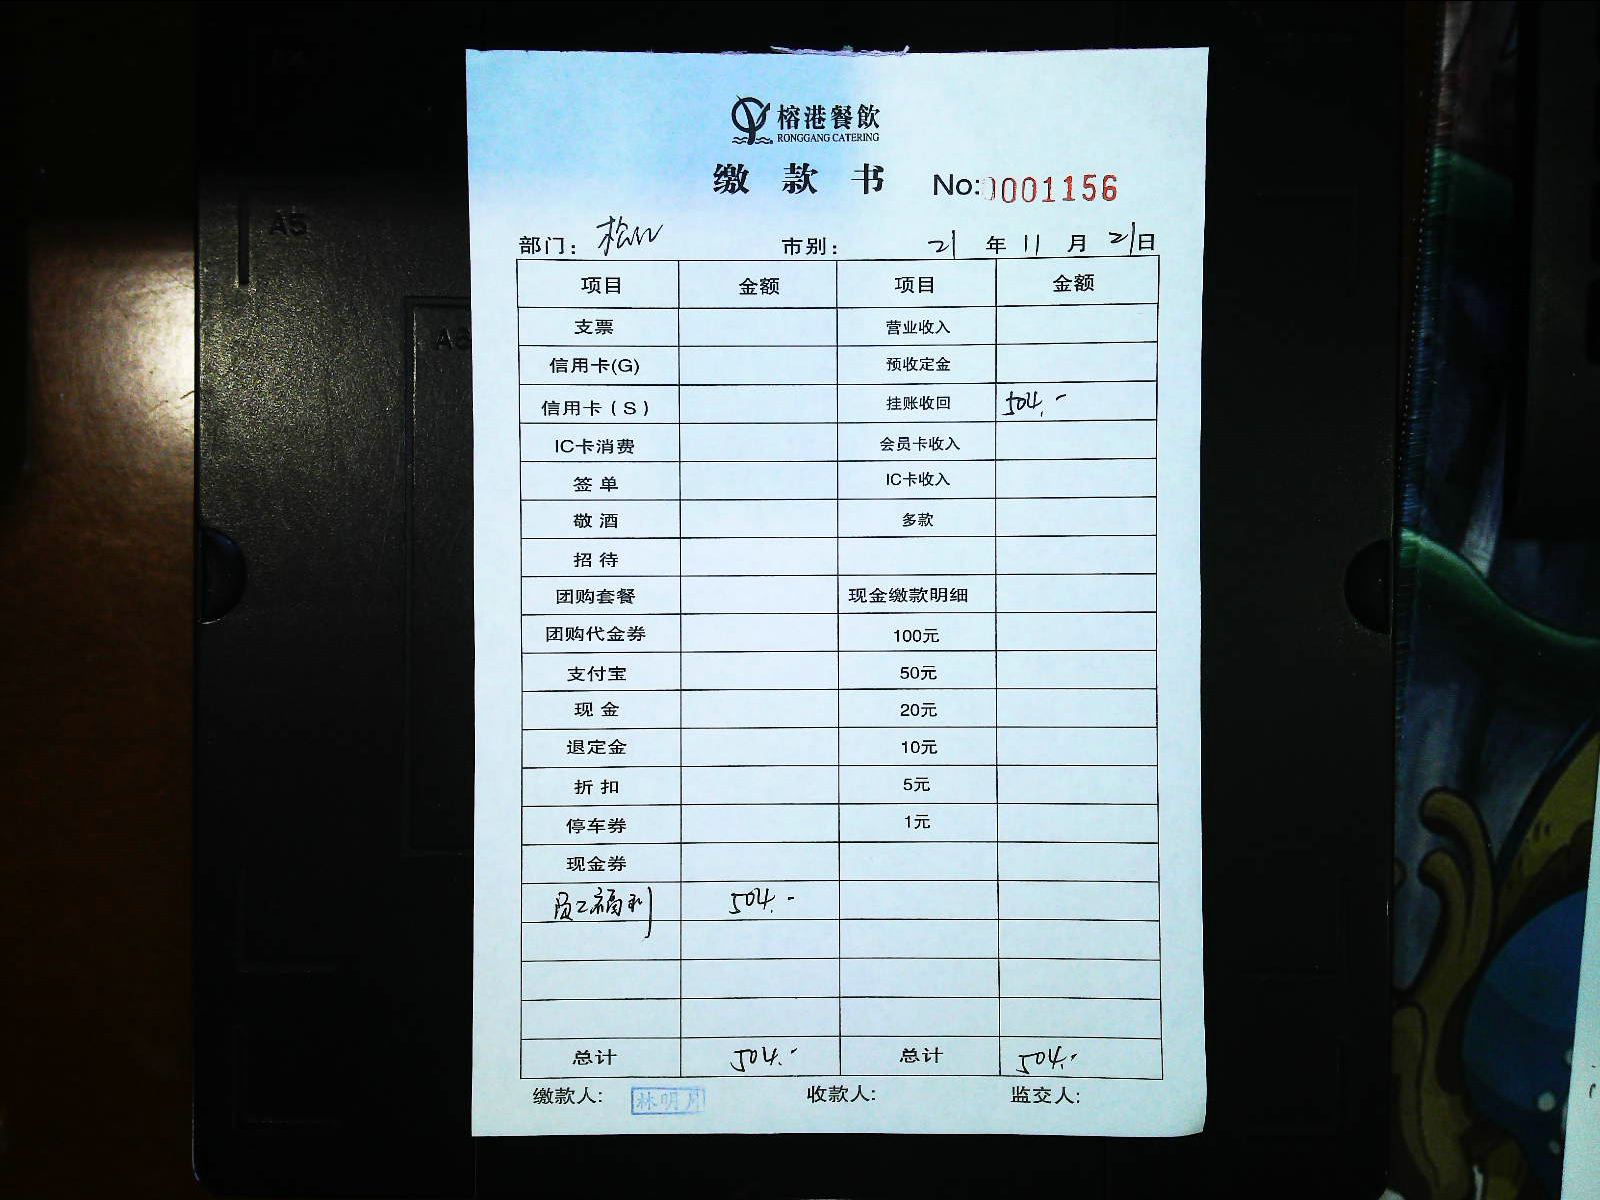 A5
榕港餐飲
RONGGANG CATERING
缴款书 No:0001156
部门: 松山 市别: 21 年 11 月 21 日
项目 金额 项目 金额
支票 营业收入
信用卡(G) 预收定金
信用卡(S) 挂账收回 504.-
IC卡消费 会员卡收入
签单 IC卡收入
敬酒 多款
招待
团购套餐 现金缴款明细
团购代金券 100元
支付宝 50元
现金 20元
退定金 10元
折扣 5元
停车券 1元
现金券
员工福利 504.-
总计 504.- 总计 504.-
缴款人: 林明月 收款人: 监交人: